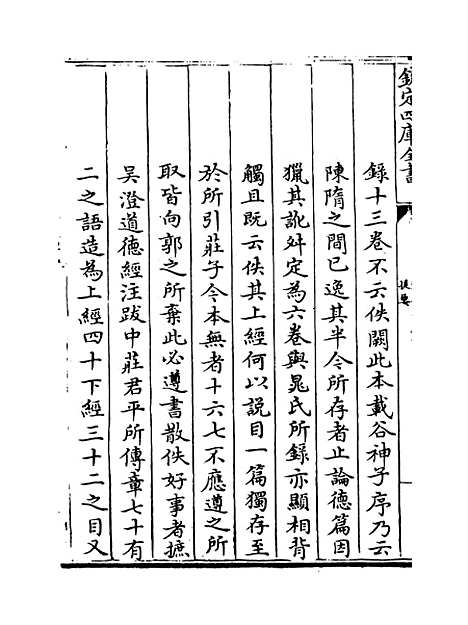 欽定四庫全書
提要
錄十三卷不云佚闕此本載谷神子序乃云
陳隋之間已逸其半今所存者止論德篇因
獵其訛舛定為六卷與晁氏所錄亦顯相背
觸且既云佚其上經何以説目一篇獨存至
於所引莊子今本無者十六七不應遵之所
取皆向郭之所棄此必遵書散佚好事者摭
吳澄道德經注跋中莊君平所傳章七十有
二之語造為上經四十下經三十二之目又